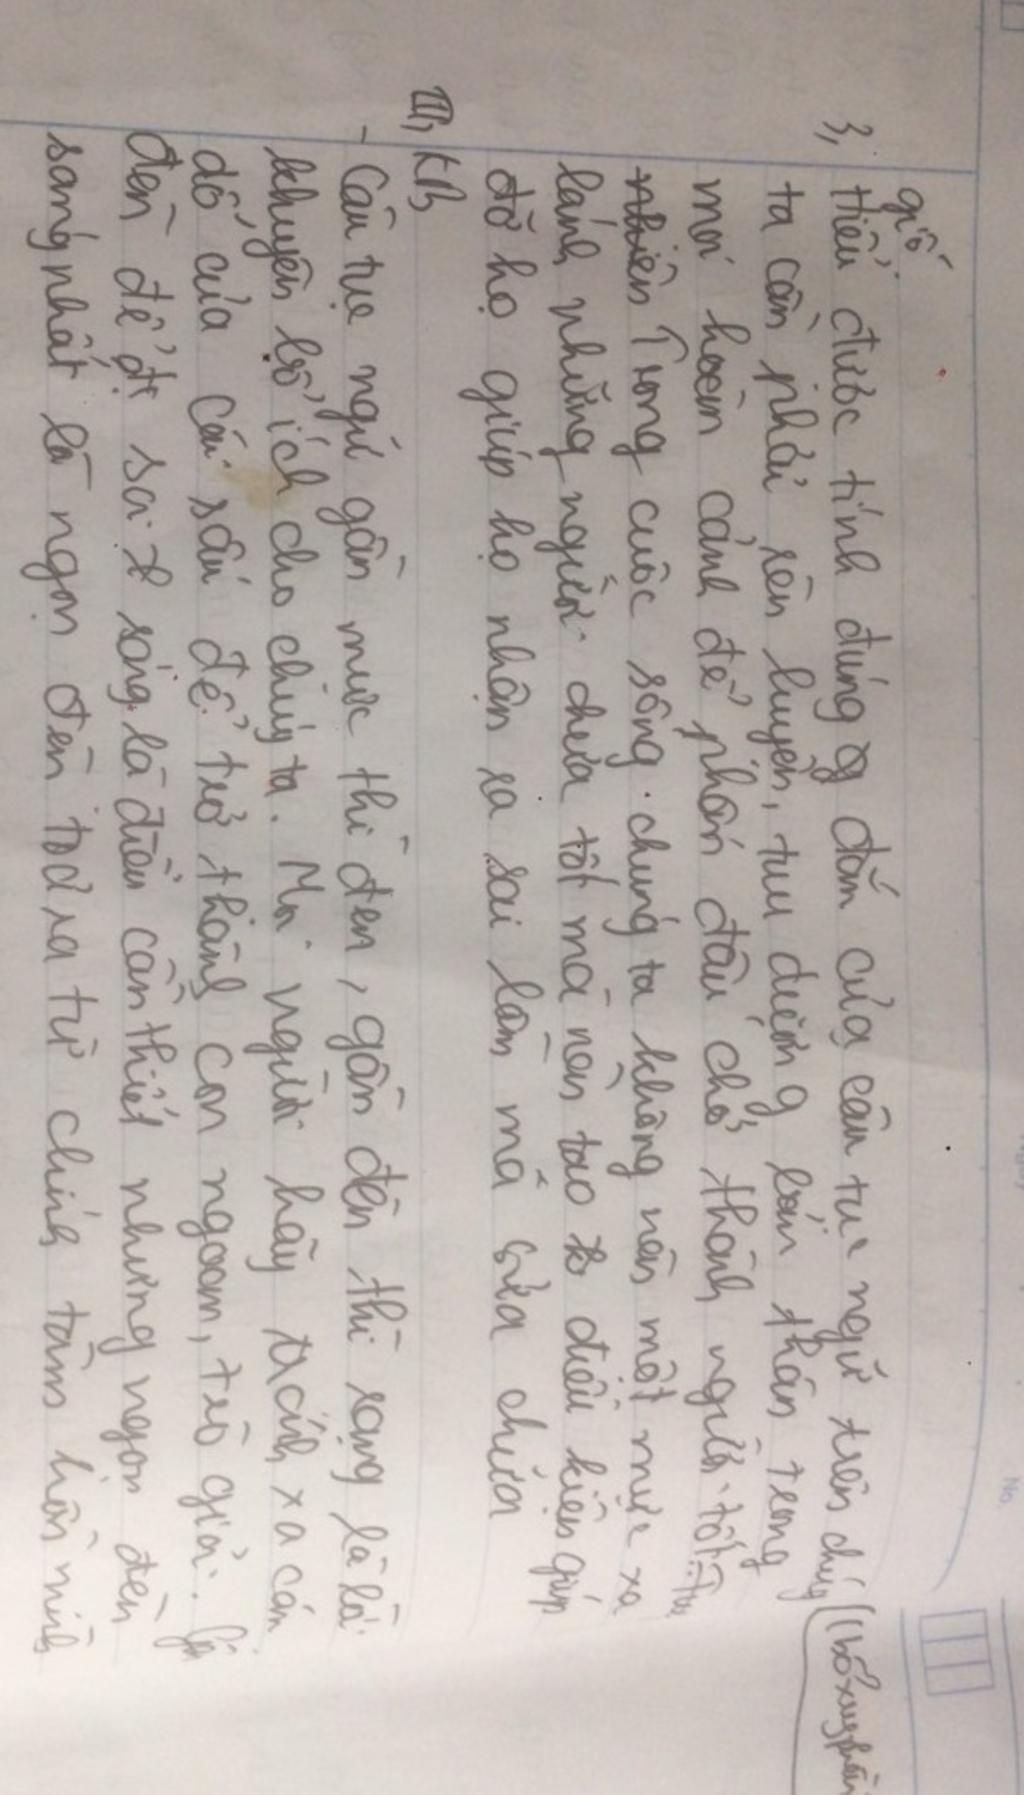 giờ
3, Hiểu được tính đúng đắn của câu tục ngữ trên chúng
ta cần phải rèn luyện, tu dưỡng bản thân trong
mọi hoàn cảnh để phấn đấu chở thành người tốt. Tuy
nhiên Trong cuộc sống chúng ta không nên một mực xa
lánh những người chưa tốt mà nên tạo điều kiện giúp
đỡ họ giúp họ nhận ra sai lầm mà sửa chữa
III, KB
- Câu tục ngữ gần mực thì đen, gần đèn thì sạng là lời
khuyên bổ ích cho chúng ta. Mọi người hãy tránh xa cám
dỗ của cái xấu để trở thành con ngoan, trò giỏi.
đèn để đc soi sáng là điều cần thiết nhưng ngọn đèn
sáng nhất là ngọn đèn toả ra từ chính tâm hồn mình